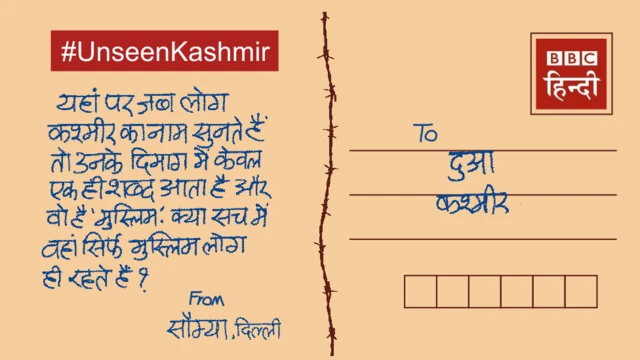 #UnseenKashmir
यहां पर जब लोग
कश्मीर का नाम सुनते हैं
तो उनके दिमाग में केवल
एक ही शब्द आता है और
वो है 'मुस्लिम'. क्या सच में
वहां सिर्फ मुस्लिम लोग
ही रहते हैं ?
From
सौम्या, दिल्ली
BBC
हिन्दी
To
दुआ
कश्मीर